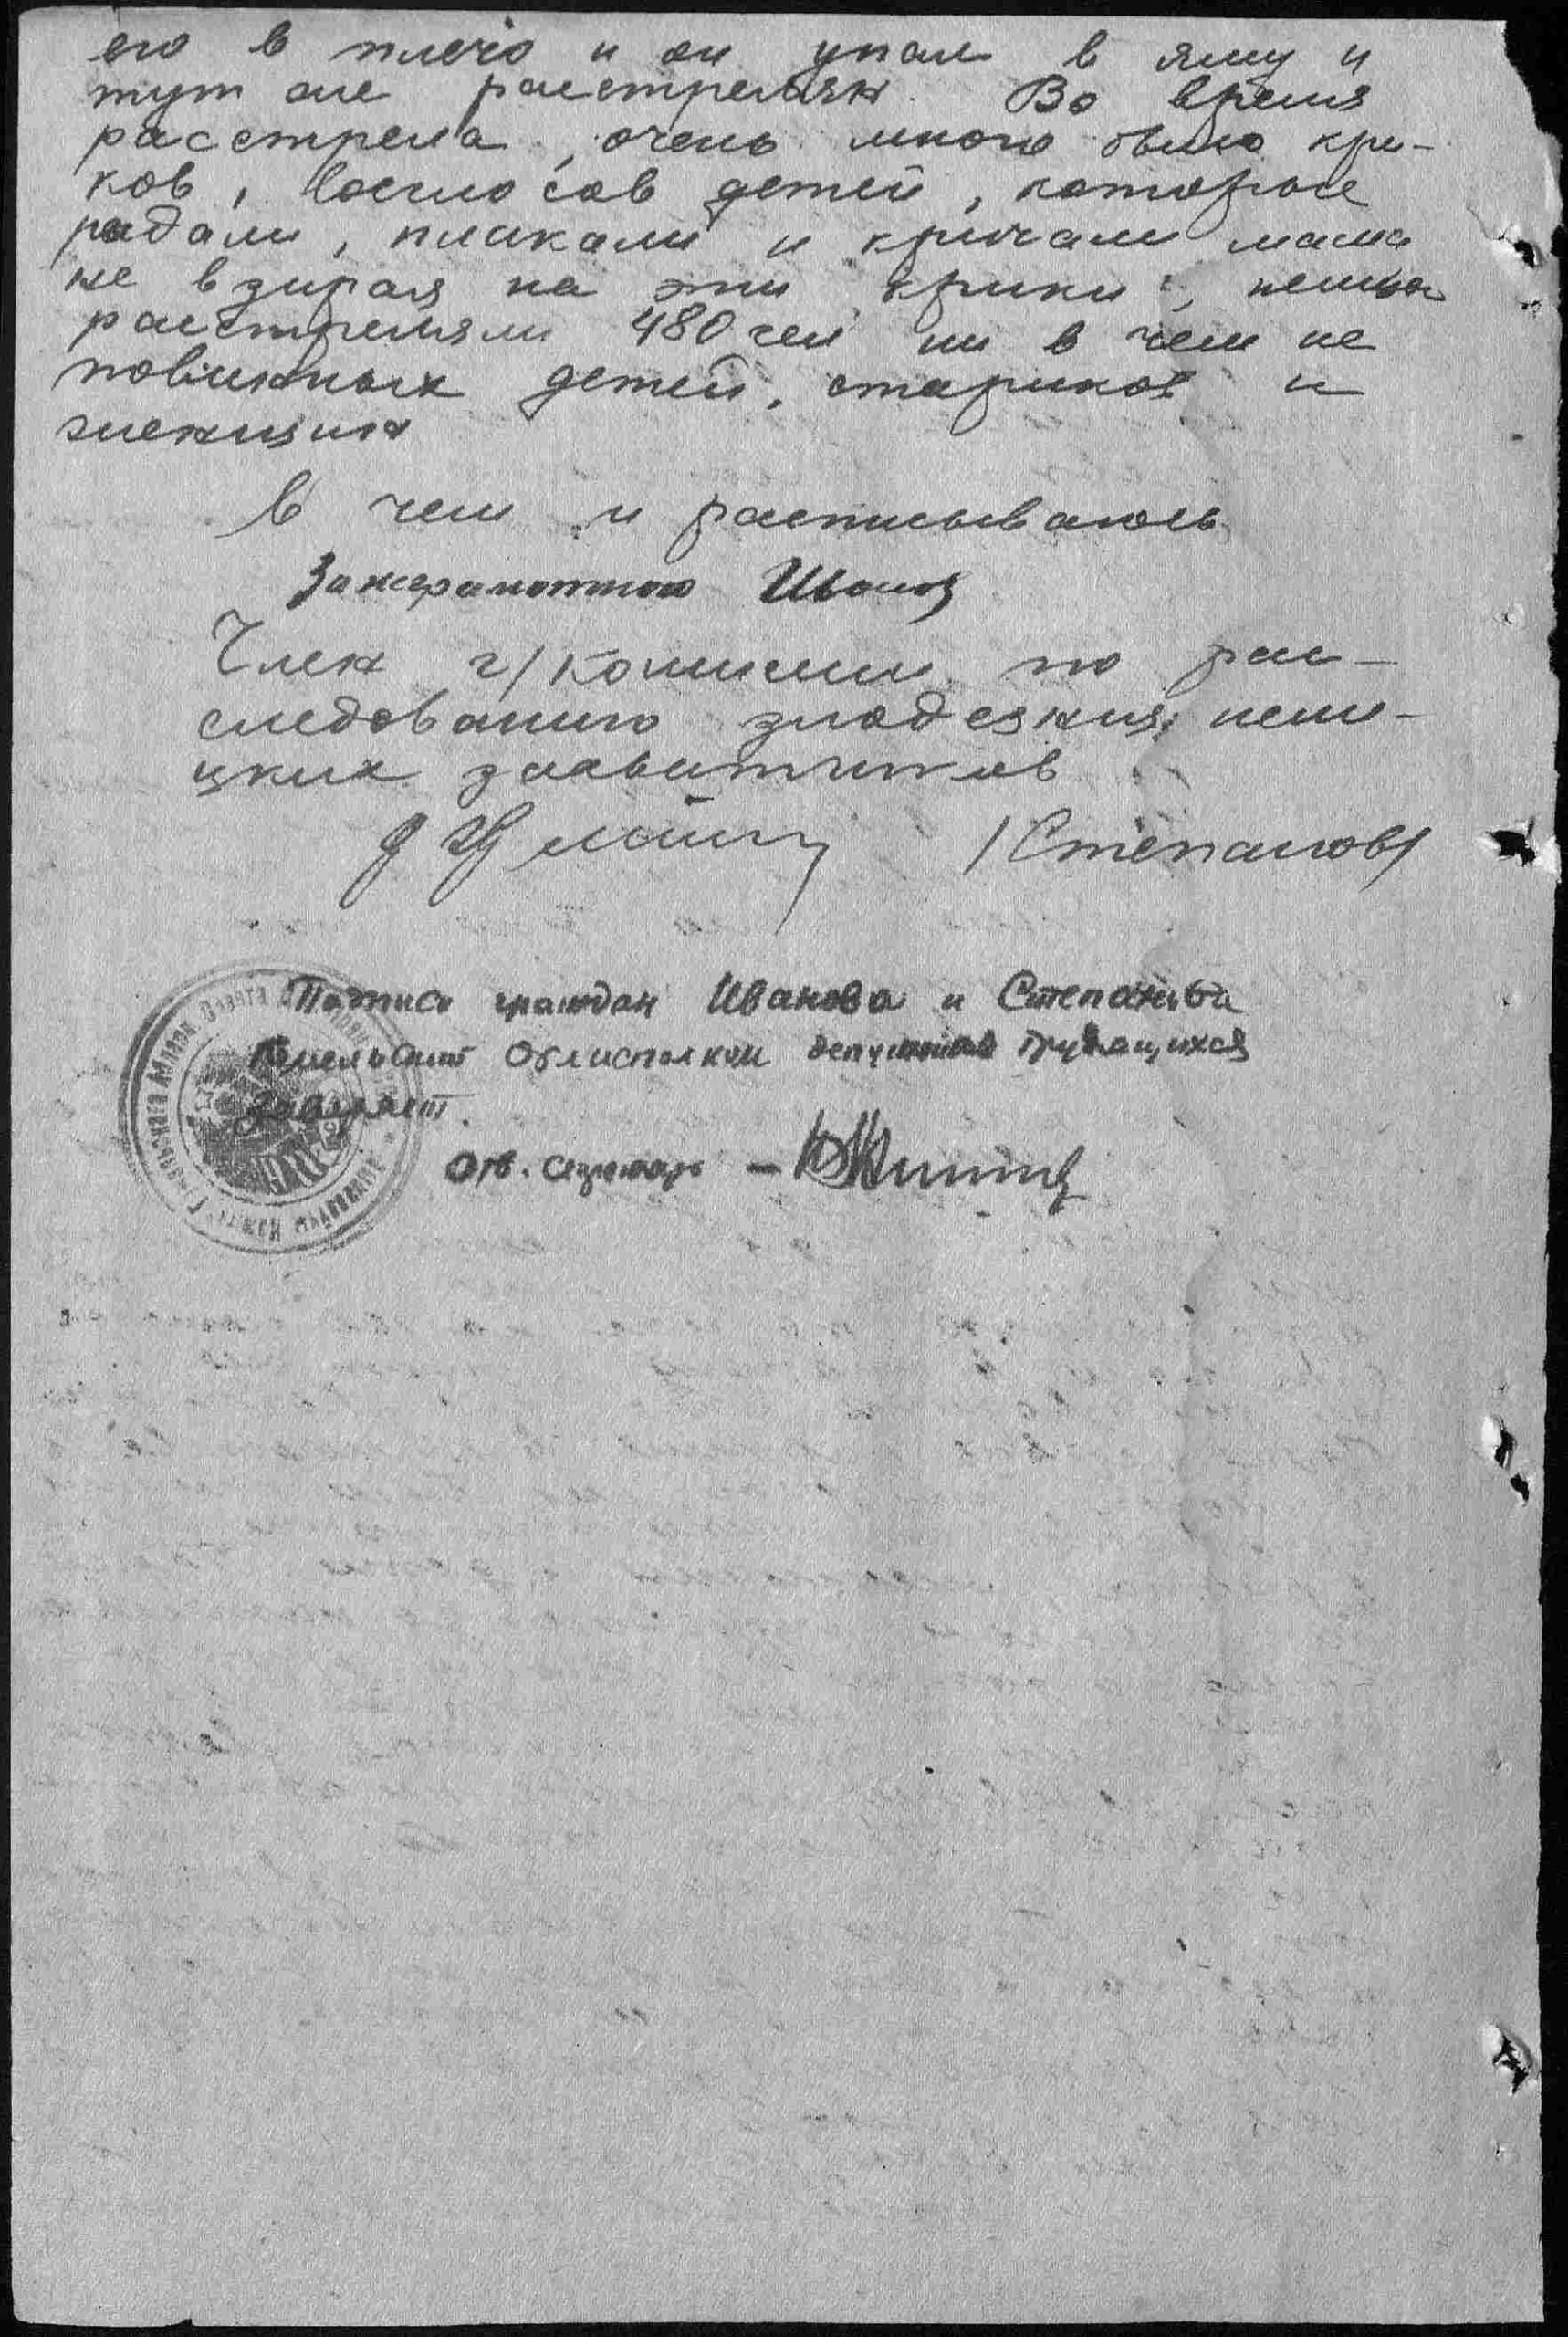 его в плечо и он упал в яму и
тут же расстрелян. Во время
расстрела, очень много было кри-
ков, возгласов детей, которые
рыдали, плакали и кричали мама
не взирая на эти крики, немцы
расстреляли 480 чел ни в чем не
повинных детей, стариков и
женщин
В чем и расписываюсь
За неграмотного Иванов
Член г/комиссии по рас-
следованию злодеяния неме-
цких захватчиков
/Степанов/
Подписи граждан Иванова и Степанова
Гомельский Облисполком депутатов трудящихся
заверяет.
Отв. секретарь —